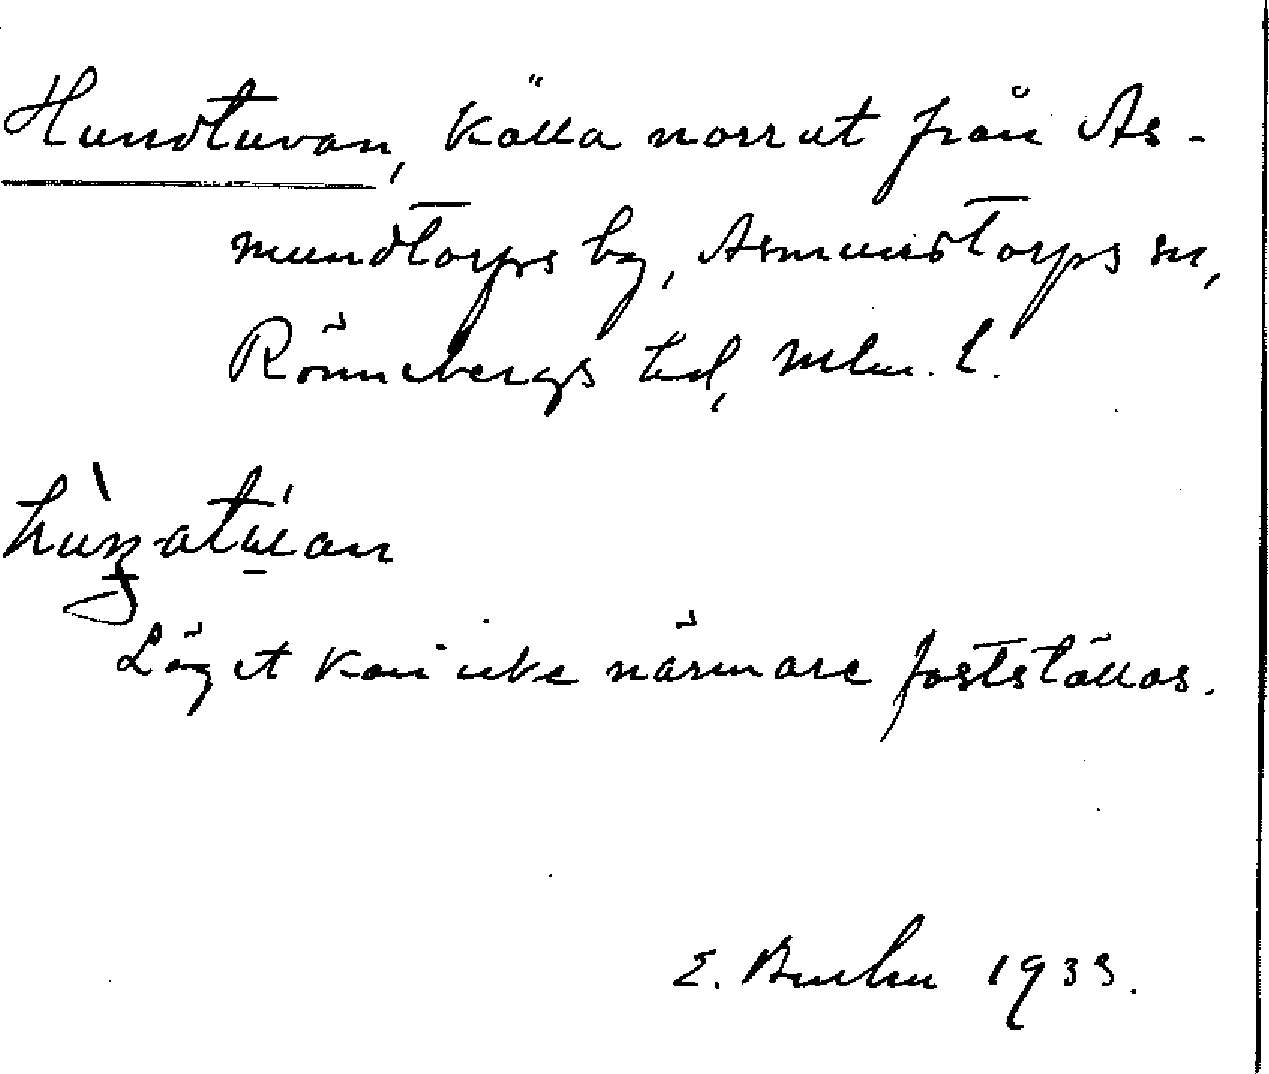 Hundtuvan, källa norrut från As-
mundtorps by, Asmundtorps sn,
Rönnebergs hd, Mlm. l.
Läget kan icke närmare fastställas.
E. 1933.